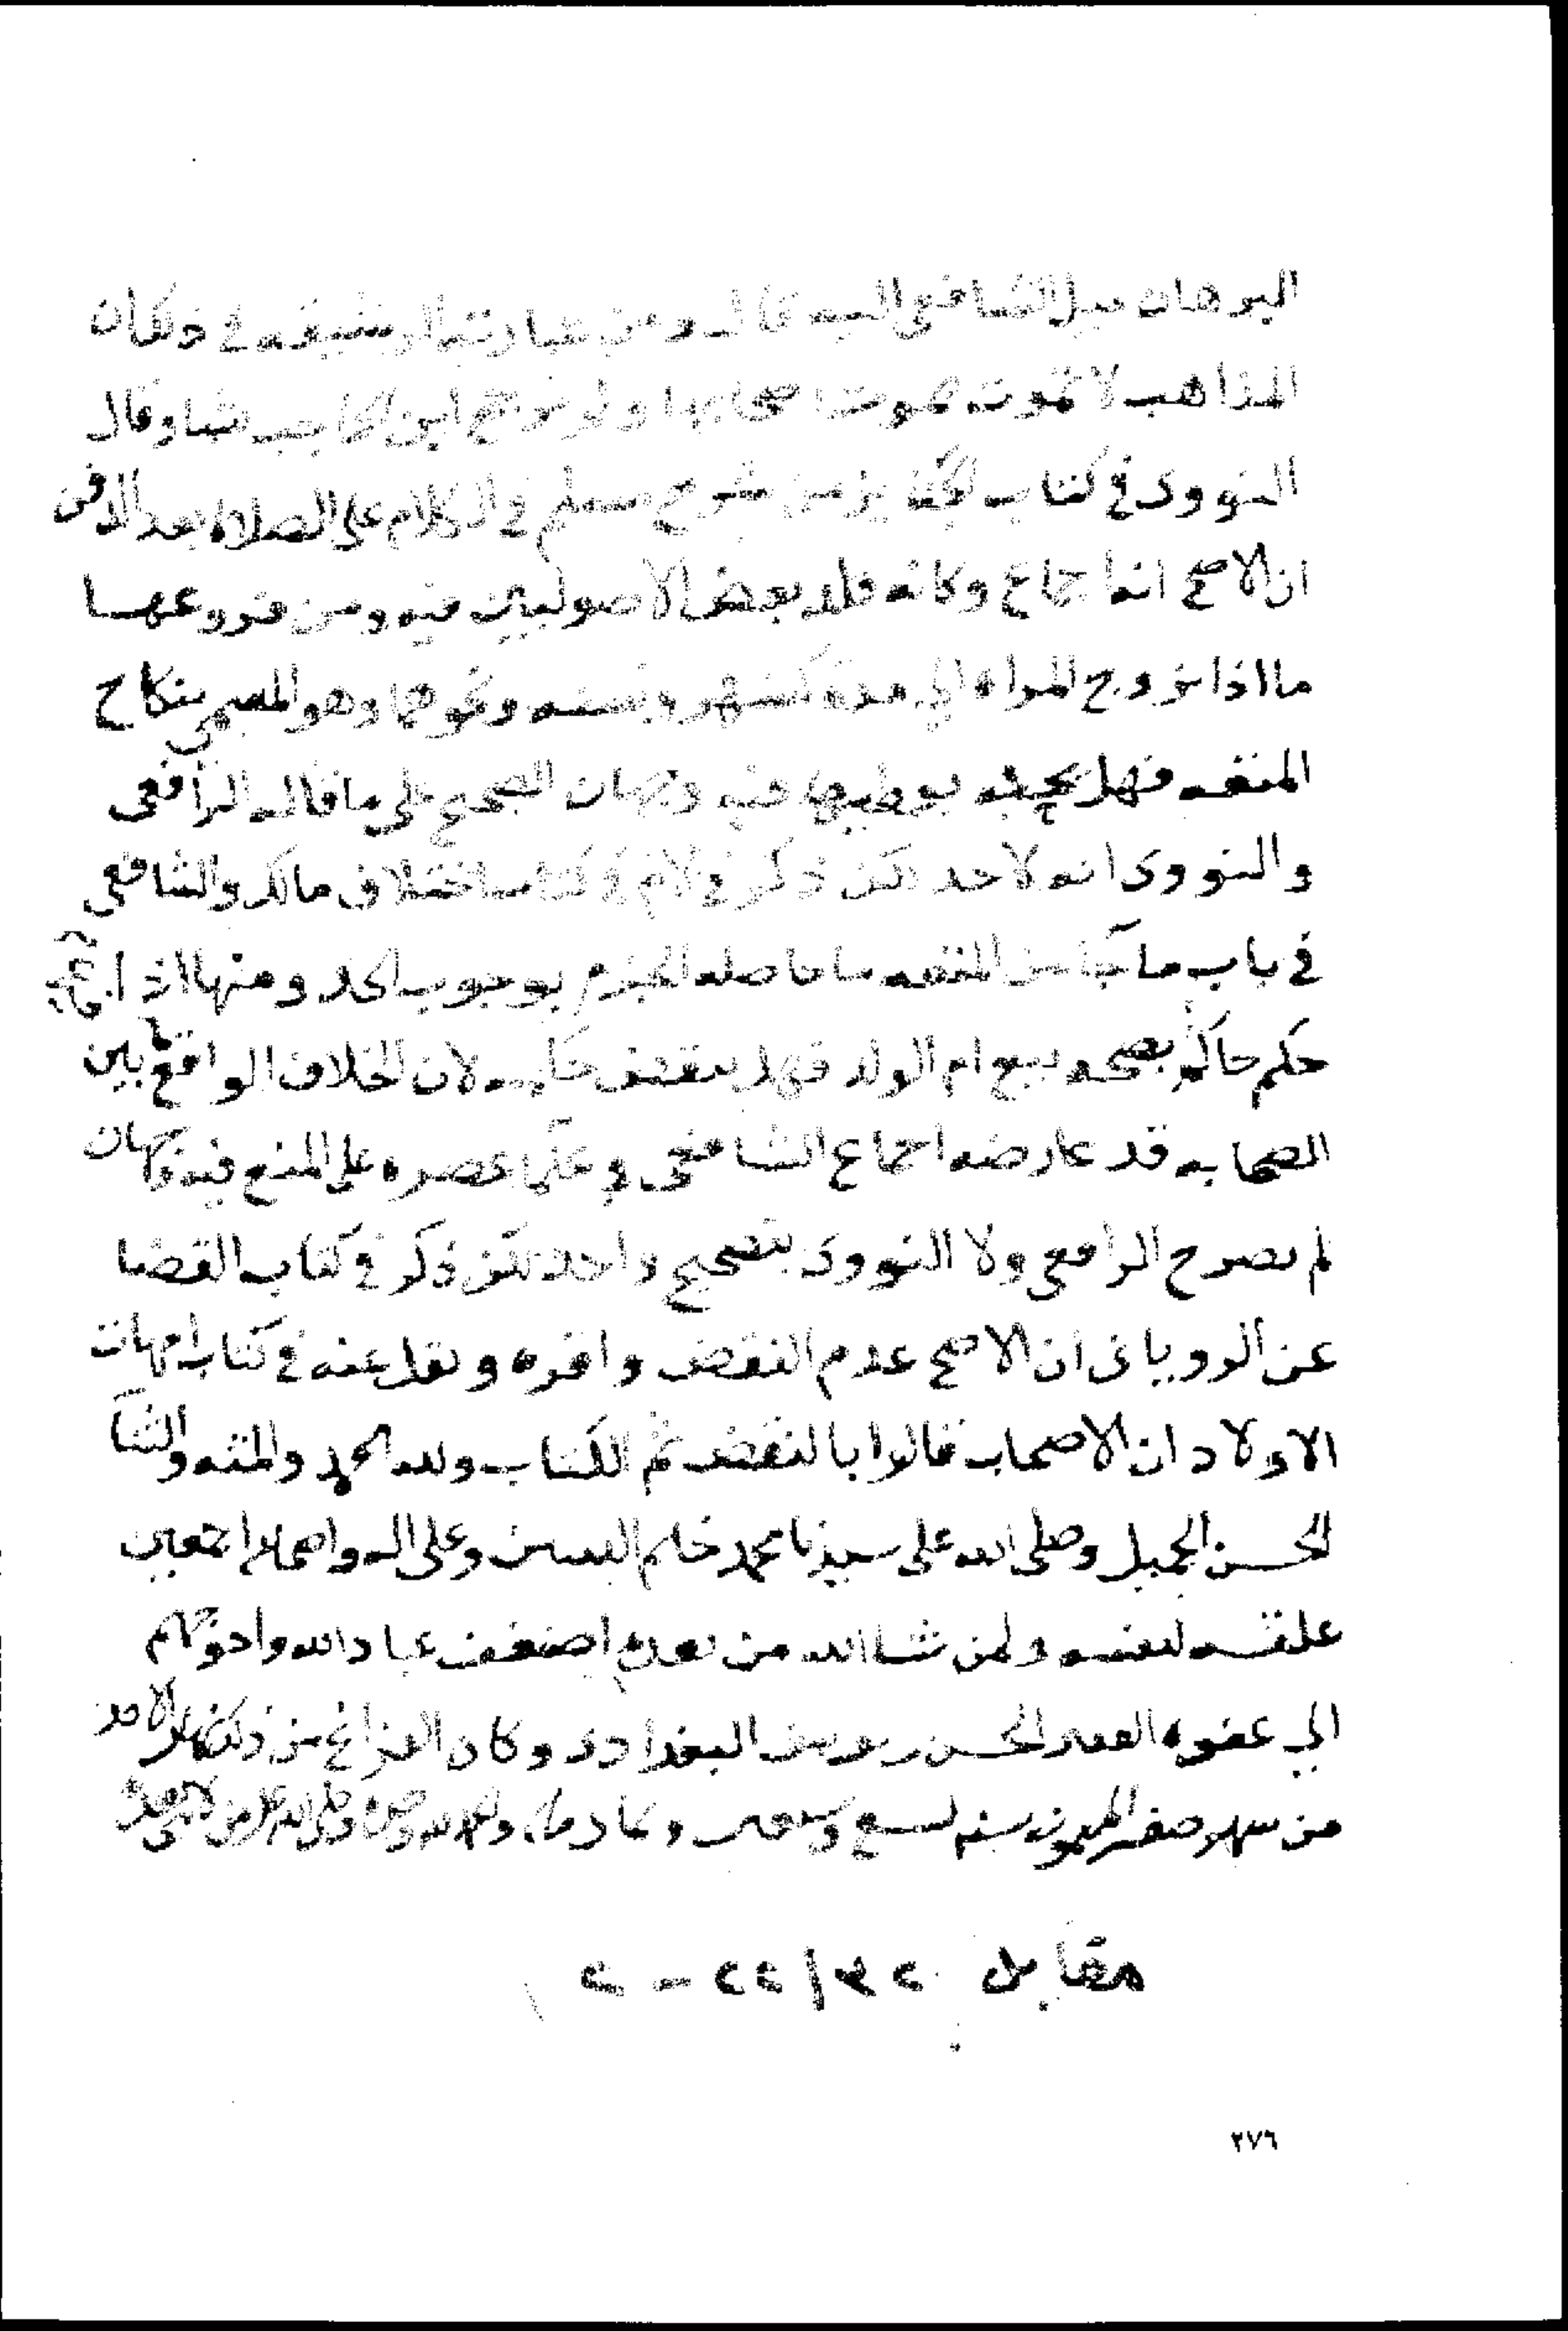 البرهان ميل الشافعي اليه قال ومن عبارته الرشيقه في ذلك ان
المذاهب لا تموت بموت اصحابها ولم يرجح ابن الحاجب شيا وقال
النووى في كتاب الجنايز من شرح مسلم في الكلام على الصلاة بعد الدفن
ان الاصح انه اجماع وكانه قلد بعض الاصوليين فيه ومن فروعها
ما اذا تزوج المراه الي مدة كشهر وسنه ونحوهما وهو المسمي بنكاح
المتعه فهل يجب بوطيها فيه وجهان الصحيح على ما قاله الرافعى
والنووى انه لا حد لكن ذكر في الام في كتاب اختلاف مالك والشافعي
في باب ما جآ من المتعه ما حاصله الجزم بوجوب الحد ومنها اذا
حكم حاكم بصحه بيع ام الولد فهل ينقض حكمه لان الخلاف الواقع بين
الصحابه قد عارضه اجماع الشافعي وعلما عصره على المنع فيه وجهان
لم يصرح الرافعي ولا النووى بتصحيح واحد لكن ذكر في كتاب القضا
عن الرويانى ان الاصح عدم النقض واقره ونقل عنه في كتاب امهات
الاولاد ان الاصحاب قالوا بالنقض تم الكتاب ولله الحمد والمنه والثنآ
الحسن الجميل وصلى الله على سيدنا محمد خاتم النبيين وعلى اله واصحابه اجمعين
علقه لنفسه ولمن شا الله من بعده اضعف عباد الله واحوجهم
الي عفوه الفقير الحسن بن البغدادى وكان الفراغ من ذلك نهار الاحد
من شهر صفر الميمون سنه تسع وسبعين وثمان مايه والحمد لله وحده وصلى الله على من لا نبي بعده
مقابل
٢٧٦